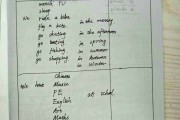 watch TV
sleep
We ride a bike
fly a kite in the morning
go skating in the afternoon
go boating in spring
go fishing in summer
go shopping in Autumn
in winter
Chinese
We have Music
PE at school
English
Art
Maths